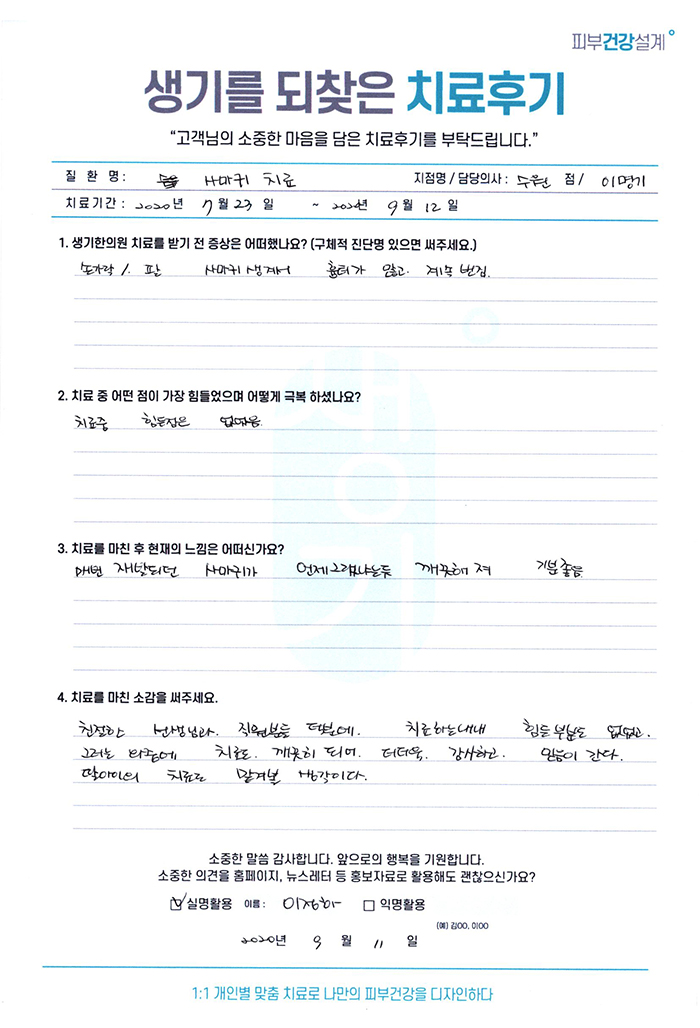 피부건강설계
생기를 되찾은 치료후기
“고객님의 소중한 마음을 담은 치료후기를 부탁드립니다.”
질 환 명 : 사마귀 치료 지점명 / 담당의사 : 수원 점 / 이명기
치료기간 : 2020년 7월 23일 ~ 2020년 9월 12일
1. 생기한의원 치료를 받기 전 증상은 어떠했나요? (구체적 진단명 있으면 써주세요.)
손가락 / 팔 사마귀 생겨서 흉터가 있고. 계속 번짐.
2. 치료 중 어떤 점이 가장 힘들었으며 어떻게 극복 하셨나요?
치료중 힘든점은 없었음.
3. 치료를 마친 후 현재의 느낌은 어떠신가요?
매번 재발되던 사마귀가 언제그랬냐는듯 깨끗해 져 기분좋음
4. 치료를 마친 소감을 써주세요.
친절한 선생님과. 직원분들 덕분에. 치료하는내내 힘든부분도 없었고.
그러는 와중에 치료도. 깨끗히 되어. 더더욱. 감사하고. 믿음이 간다.
딸아이의 치료도 맡겨볼 생각이다.
소중한 말씀 감사합니다. 앞으로의 행복을 기원합니다.
소중한 의견을 홈페이지, 뉴스레터 등 홍보자료로 활용해도 괜찮으신가요?
실명활용 이름 : 익명활용
(예) 김OO, 이OO
2020년 9 월 11 일
1:1 개인별 맞춤 치료로 나만의 피부건강을 디자인하다
생기